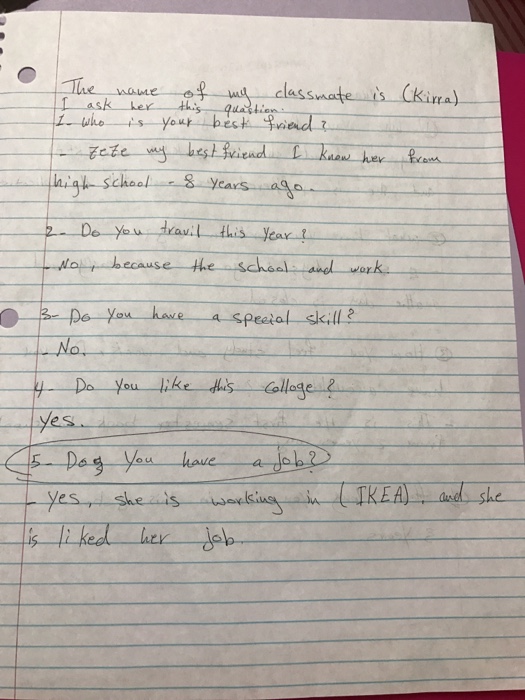 The name of my classmate is (Kirra)
I ask her this quastion.
1- who is your best friend?
- zeze my best friend I know her from
high-school - 8 years ago.
2- Do you travil this year?
- No, because the school and work.
3- Do you have a special skill?
- No.
4- Do you like this Colloge?
yes.
5- Dog You have a job?
- yes, she is working in (IKEA), and she
is liked her job.